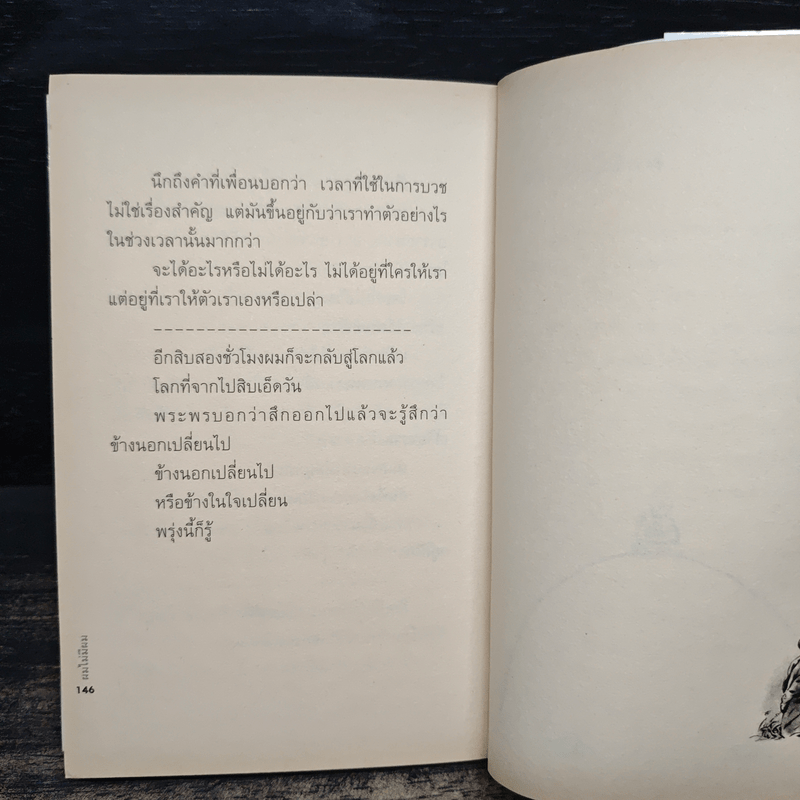 นึกถึงคำที่เพื่อนบอกว่า เวลาที่ใช้ในการบวช
ไม่ใช่เรื่องสำคัญ แต่มันขึ้นอยู่กับว่าเราทำตัวอย่างไร
ในช่วงเวลานั้นมากกว่า
จะได้อะไรหรือไม่ได้อะไร ไม่ได้อยู่ที่ใครให้เรา
แต่อยู่ที่เราให้ตัวเราเองหรือเปล่า
อีกสิบสองชั่วโมงผมก็จะกลับสู่โลกแล้ว
โลกที่จากไปสิบเอ็ดวัน
พระพรบอกว่าสึกออกไปแล้วจะรู้สึกว่า
ข้างนอกเปลี่ยนไป
ข้างนอกเปลี่ยนไป
หรือข้างในใจเปลี่ยน
พรุ่งนี้ก็รู้
ผมไม่มีผม
146